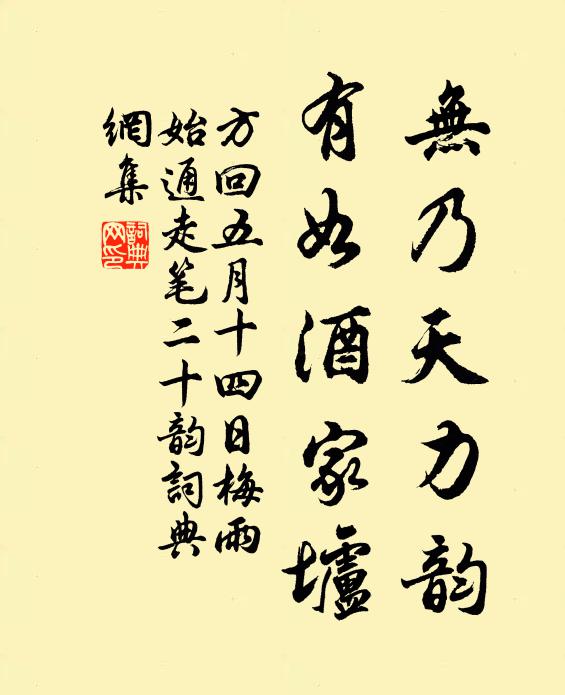 無乃天力韵
有如酒家壚
方回五月十四日梅雨
始通走笔二十韵詞典
網集
詞典
网印